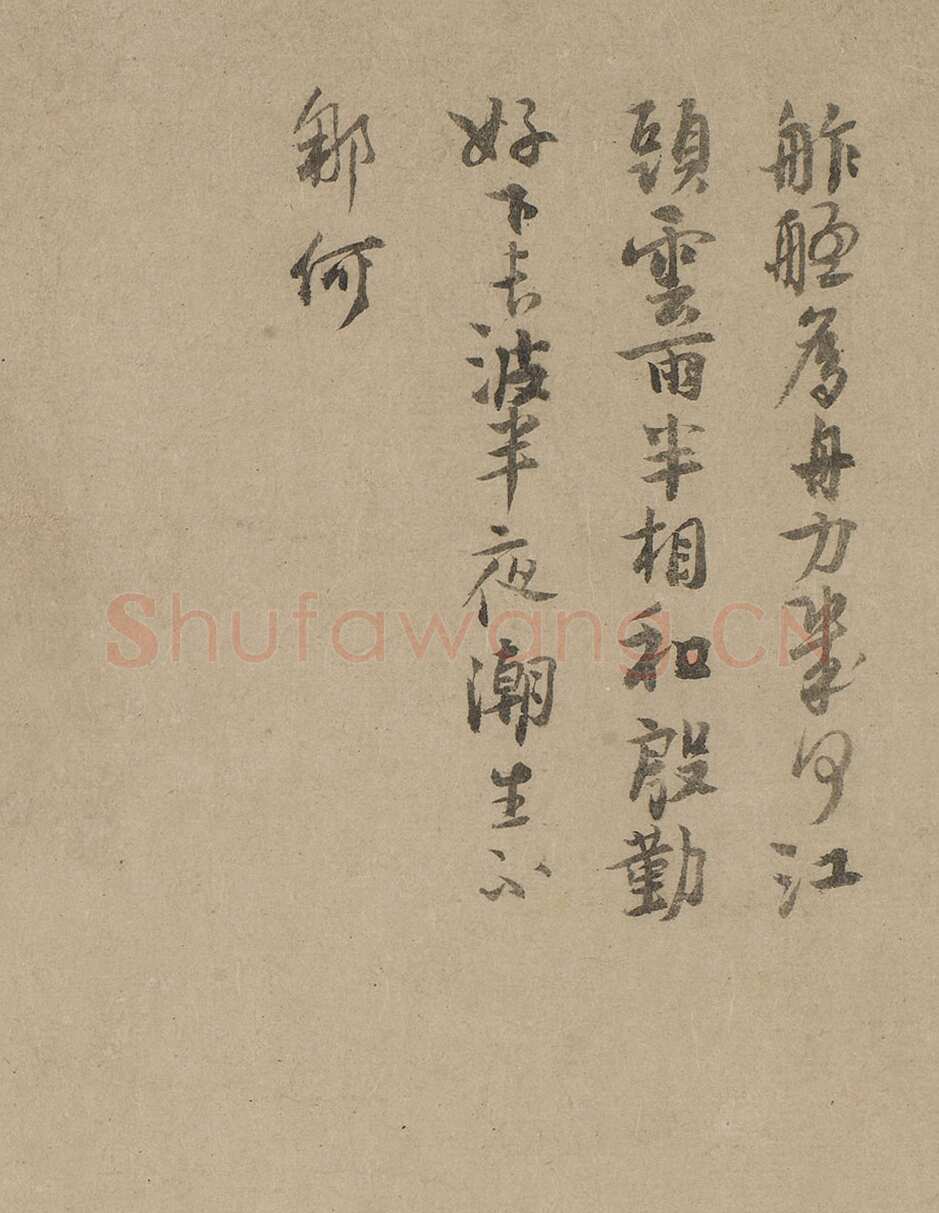 舴艋為舟力幾何江
頭雲雨半相和殷勤
好下長波半夜潮生不
那何
Shufawang.CN